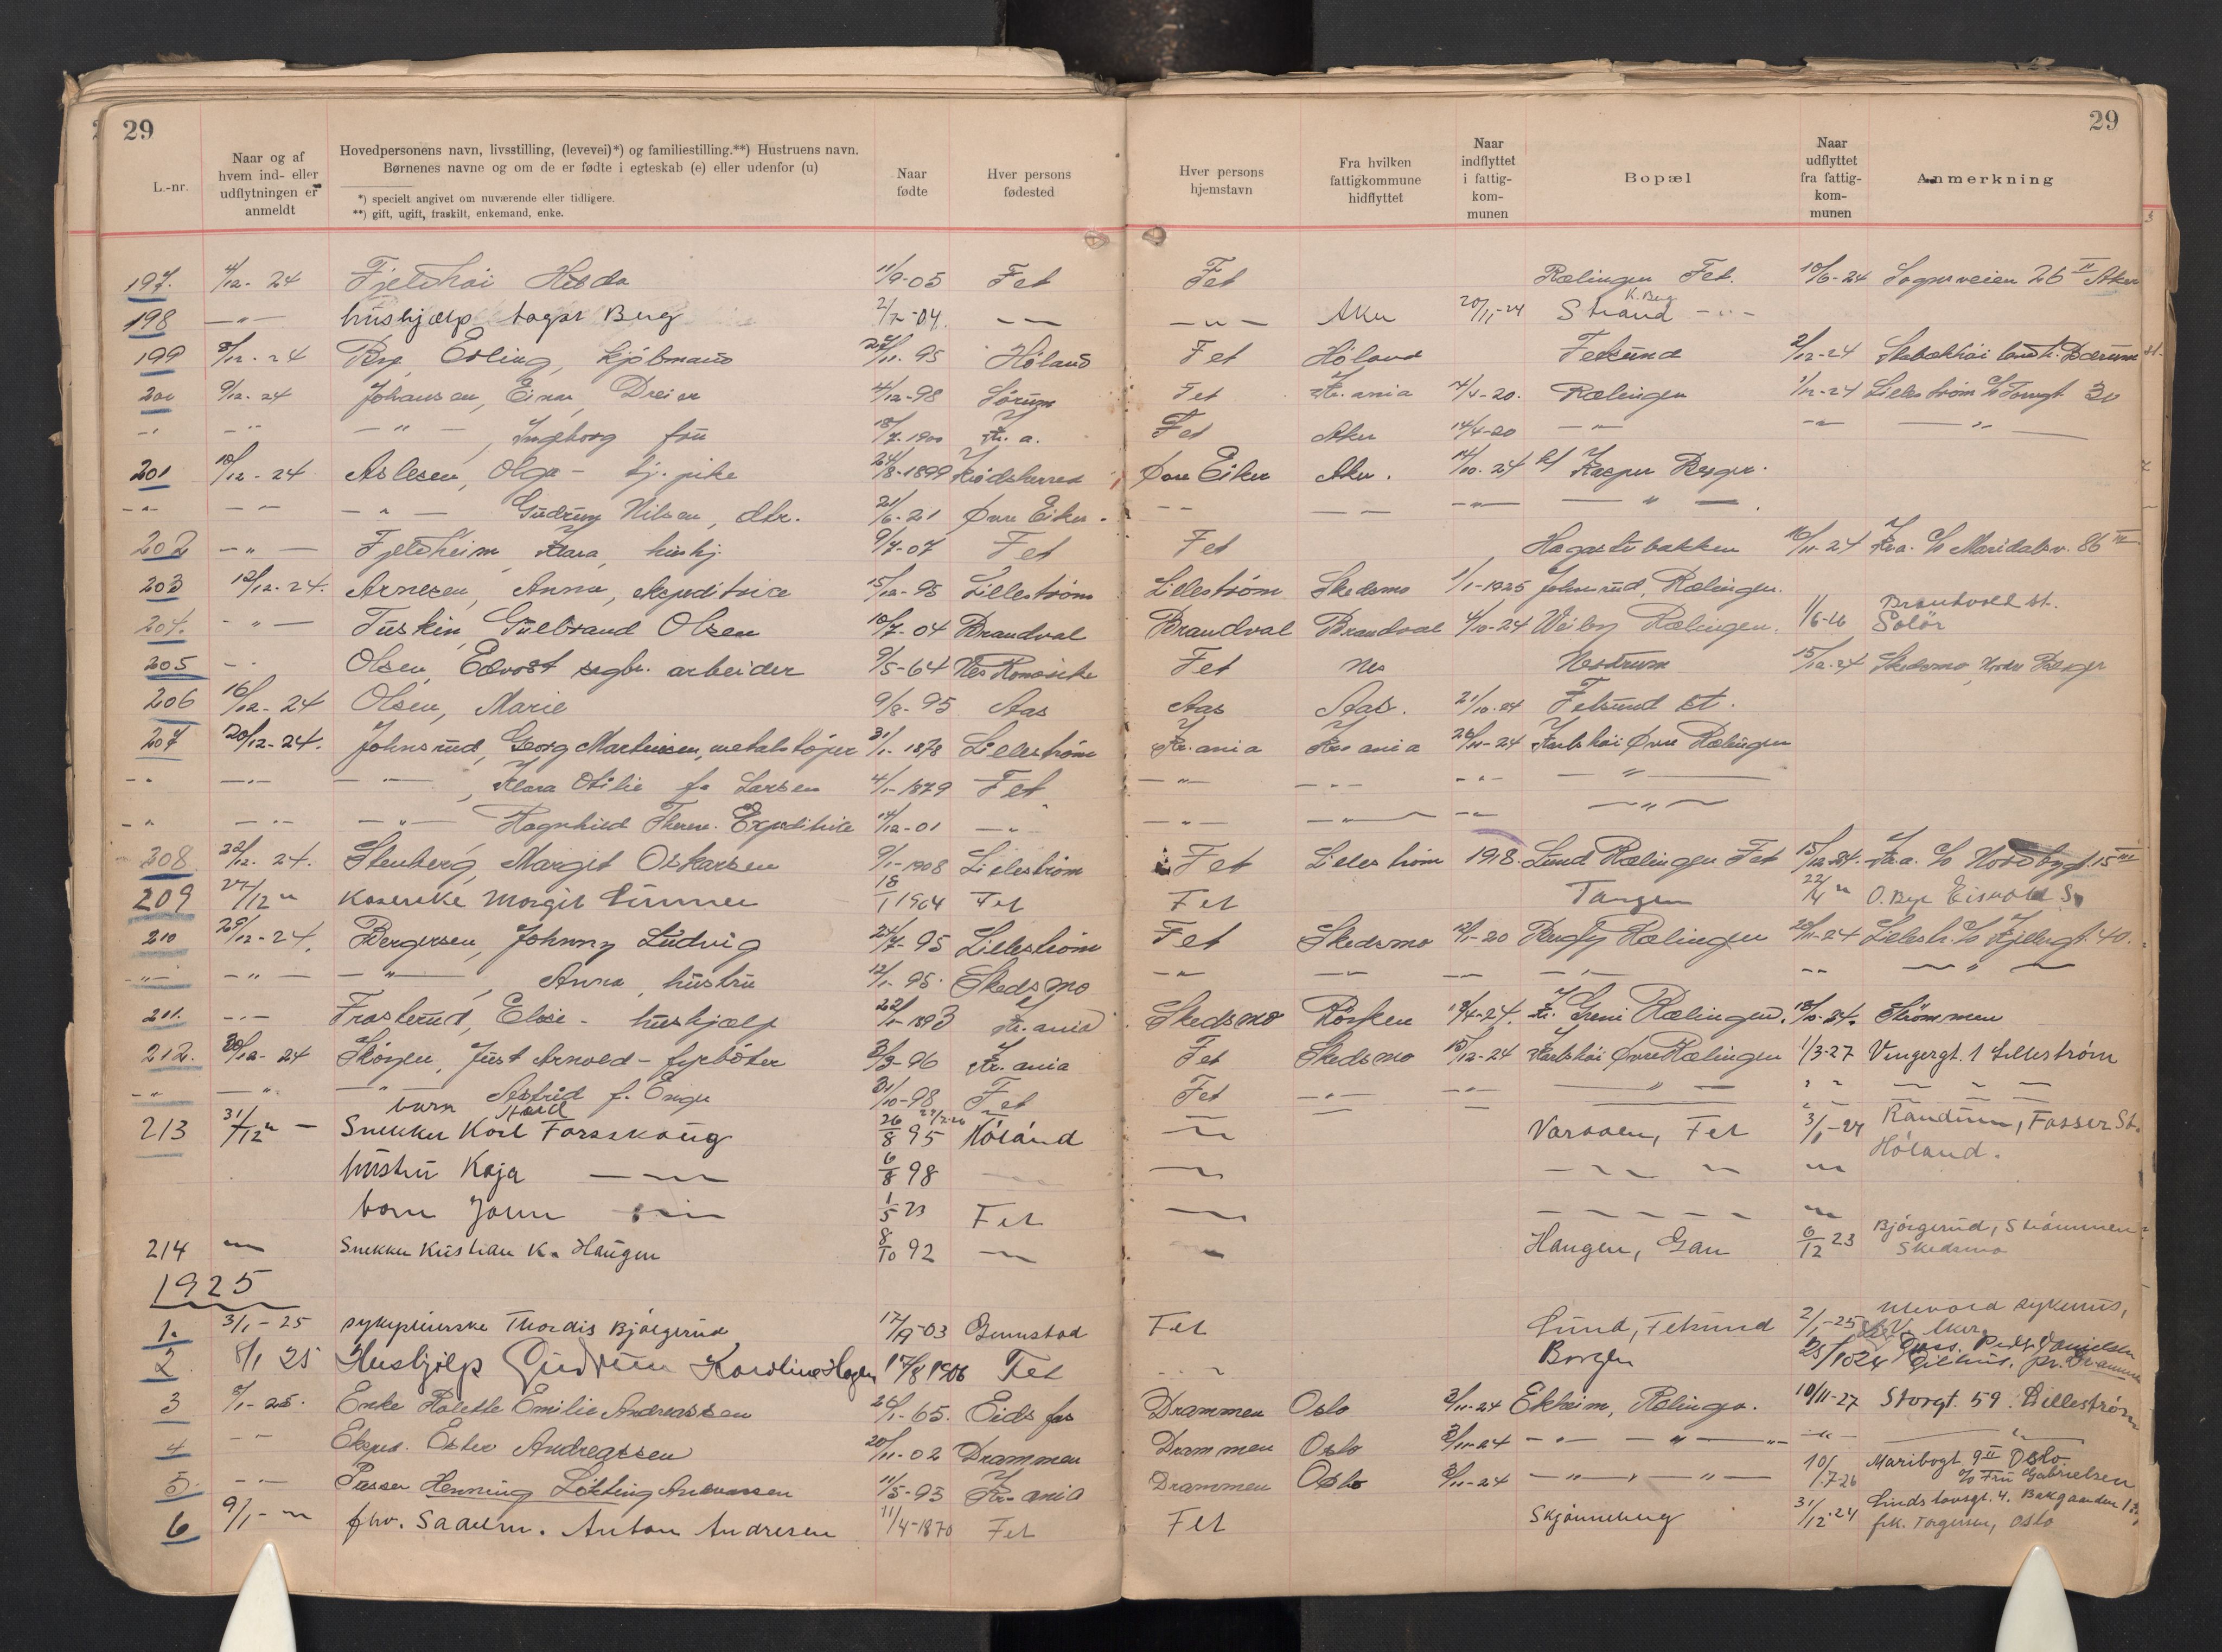 29
29
L.-nr.
Naar og af hvem ind- eller udflytningen er anmeldt
Hovedpersonens navn, livsstilling, (levevei)*) og familiestilling.**) Hustruens navn.
Børnenes navne og om de er fødte i egteskab (e) eller udenfor (u)
*) specielt angivet om nuværende eller tidligere.
**) gift, ugift, fraskilt, enkemand, enke.
Naar fødte
Hver persons fødested
Hver persons hjemstavn
Fra hvilken fattigkommune hidflyttet
Naar indflyttet i fattigkommunen
Bopæl
Naar udflyttet fra fattigkommunen
Anmerkning
197. 4/12-24 Fjeldhöi Hilda 11/9-05 Fet Fet Rælingen Fet. 10/6-24 26 II Aker
198 —"— hushjælp Dagar Berg 2/7-04 —— —"— Aker 20/11-24 Strand K. Berg —"—
199 8/12-24 Bye, Erling, kjöbmand 95 Höland Fet Höland Fetsund 2/12-24 Bærum st.
200 9/12-24 Johansen, Einar, Dreier 4/12-98 Sörum Fet Kr.ania 14/4-20. Rælingen 1/12-24 Lilleström c/o Torvgt 30
—" —" —"— , Ingeborg frü 18/7-1900 Kr.a. Fet Aker 14/4-20 —"— —"— —"—
201 10/12-24 Aslesen, Olga - tj. pike 24/8-1899 Krödsherred Övre Eiker Aker. 14/10-24 Kasper Berger.
—"— —"— —"— Gudrun Nilsen, dtr. 21/6-21 Övre Eiker. —— —— —"— —"—
202 —"— Fjeldheim, Klara, hushj. 9/7-07 Fet Fet Hagastubakken 16/11-24 Kr.a. c/o Maridalsv. 86 IV
203 12/12-24. Arnesen, Anna, Expeditrice 15/12-95 Lilleström Lilleström Skedsmo 1/1-1925 Johnsrud, Rælingen.
204. —"— Tuskin, Gulbrand Olsen 10/7-04 Brandval Brandval Brandval 4/10-24 Weiby Rælingen. 1/6-26 Brandvold st. Solör
205 —" Olsen, Edvart sagbr. arbeider 9/5-64 Nes Romerike Fet Nes Nordrum 15/12-24 Skedsmo, Nordre Berger
206 16/12-24 Olsen, Marie 9/8-95 Aas Aas Aas. 21/10-24 Fetsund st.
207 20/12-24. Johnsrud, Georg Martinsen, metalstöper 31/1-1878 Lilleström Kr.ania Kr.ania 26/11-24 Karlshöi Övre Rælingen
—" —"— —"— , Klara Otilie f. Larsen 4/1-1879 Fet —"— —"— —"— —"—
—" —"— —"— Ragnhild Therese. Expeditrice 14/12-01 —" —"— —"— —"— —"—
208 22/12-24. Stenberg, Margit Oskarsen 9/1-1908 Lilleström Fet Lilleström 1918. Lund Rælingen Fet 15/12-24. Kr.a. c/o Nordbygt. 15 III
209 27/12 " Margit 18/1 1904 Fet Fet Tangen O. Bye Eisvold St
210 29/12-24. Bergersen, Johnny Ludvig 24/7-95 Lilleström Fet Skedsmo 12/1-20 Rælingen 20/11-24 Lillestr. c/o Kjellergt. 40.
—"— —"— —"— , Anna, hustru 12/1-95. Skedsmo —"— —"— —"— —"— —"— —"—
211. —"— Frosterud, Elise - hushjælp 22/1-1893 Kr.ania Skedsmo Rörsken 19/4-24. Kr. Greni Rælingen. 18/10-24. Strömmen
212. 30/12-24 Skögen, Just Arnold - fyrböter 3/3-96 Kr.ania Fet Skedsmo 15/12-24 Karlshöi Övre Rælingen 1/3-27 Vingergt. 1 Lilleström
—"— —"— —"— Astrid f. Enger 31/10-98 Fet Fet —"— —"— —"— " " —
barn
213 31/12 " — Snekker Karl Forsskaug 26/8 95 Höland —"— Varaaen, Fet 3/1-24 Randum, Fosser St. Höland.
hustru Kaja —"— 6/8 98 —"— —"— —"—
barn John —"— 1/5 23 Fet —"— —"— —"—
214 —"— Snekker Kristian K. Haugen 8/10 92 —"— —"— Haugen, Gan 6/12 23 Björgerud, Strömmen Skedsmo
1925
1. 3/1-25 sykepleierske Thordis Björgerud 03 Fet Lund, Fetsund 2/1-25 Ulevold sykehus, V. Aker
2 8/1 25 Hushjelp Gudrun Karoline Hagen 17/8 1906 Fet —"— Borgen 25/10 24 Gilhus, pr. Drammen
3 9/1-25. Enke Holette Emilie Andreassen 26/1-65. Eidsfos Drammen Oslo 3/11-24 Ekheim, Rælingen. 10/11-27 Storgt. 59. Lilleström
4 —"— Exped. Ester Andreassen 20/11-02 Drammen Drammen Oslo 3/11-24 —"— —"— —"— —"—
5. —"— Passer Henning Lökting Andreassen 11/5-93 Kr.ania Drammen Oslo 3/11-24 —"— —"— 10/7-26 Maribogt. 9 II Oslo c/o Fru Gabrielsen
6 9/1-" fhv. Sadelm. Anton Andresen 11/4-1870 Fet Fet Skjönneberg 31/12-24 4. Bakgaarden frk. Torgersen, Oslo